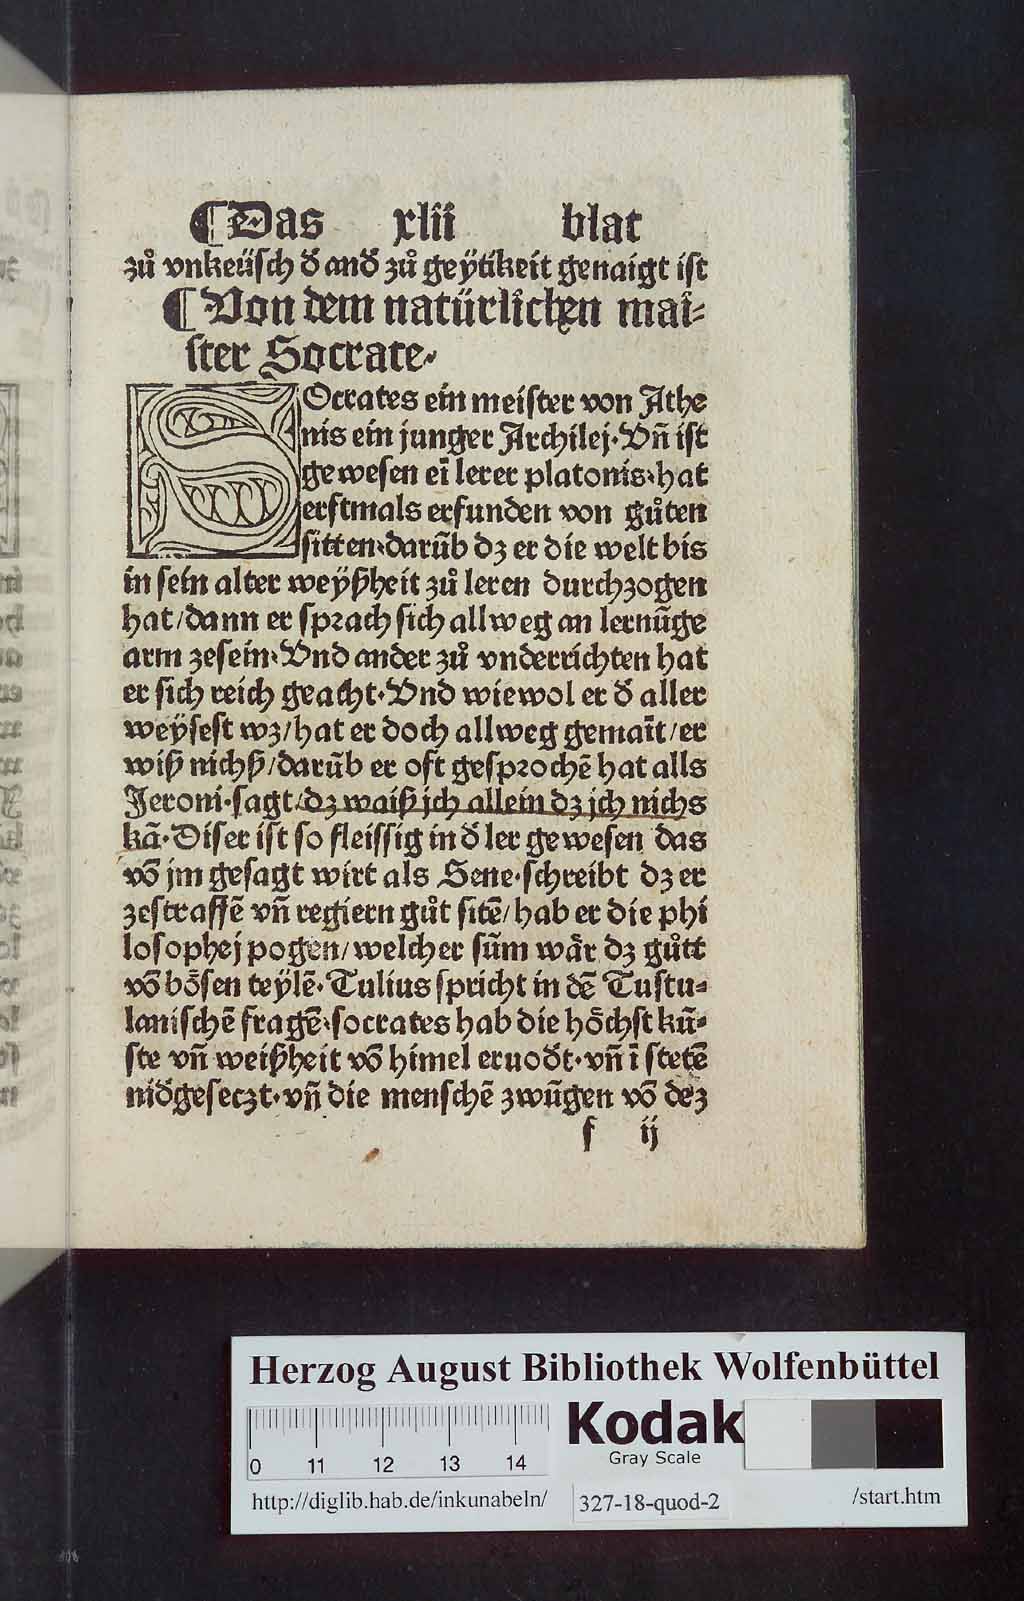 ¶Das xlii blat
zů vnkeüsch đ anđ zů geÿtikeit genaigt ist
¶Von dem natürlichen mai⸗
ster Socrate·
SOcrates ein meister von Athe
nis ein junger Archilej·Vñ ist
gewesen eī lerer platonis·hat
erstmals erfunden von gůten
sitten·darūb dz er die welt bis
in sein alter weÿßheit zů leren durchzogen
hat/dann er sprach sich allweg an lernūge
arm zesein·Vnd ander zů vnderrichten hat
er sich reich geacht·Vnd wiewol er đ aller
weÿsest wz/hat er doch allweg gemaīt/er
wiß nichß/darūb er oft gesprochē hat alls
Jeroni·sagt/dz waiß jch allein dz jch nichs
kā·Diser ist so fleissig in đ ler gewesen das
vō jm gesagt wirt als Sene·schreibt dz er
zestraffē vñ regiern gůt sitē/hab er die phi
losophej pogen/welcher sūm wår dz gůtt
vō bősen teÿlē·Tulius spricht in dē Tustu⸗
lanischē fragē·socrates hab die hőchst kū⸗
ste vñ weißheit vō himel eruođt·vñ ī stetē
niđgeseczt·vñ die menschē zwūgen vō dez
f ij
Herzog August Bibliothek Wolfenbüttel
0 11 12 13 14
Kodak
Gray Scale
http://diglib.hab.de/inkunabeln/ 327-18-quod-2 /start.htm